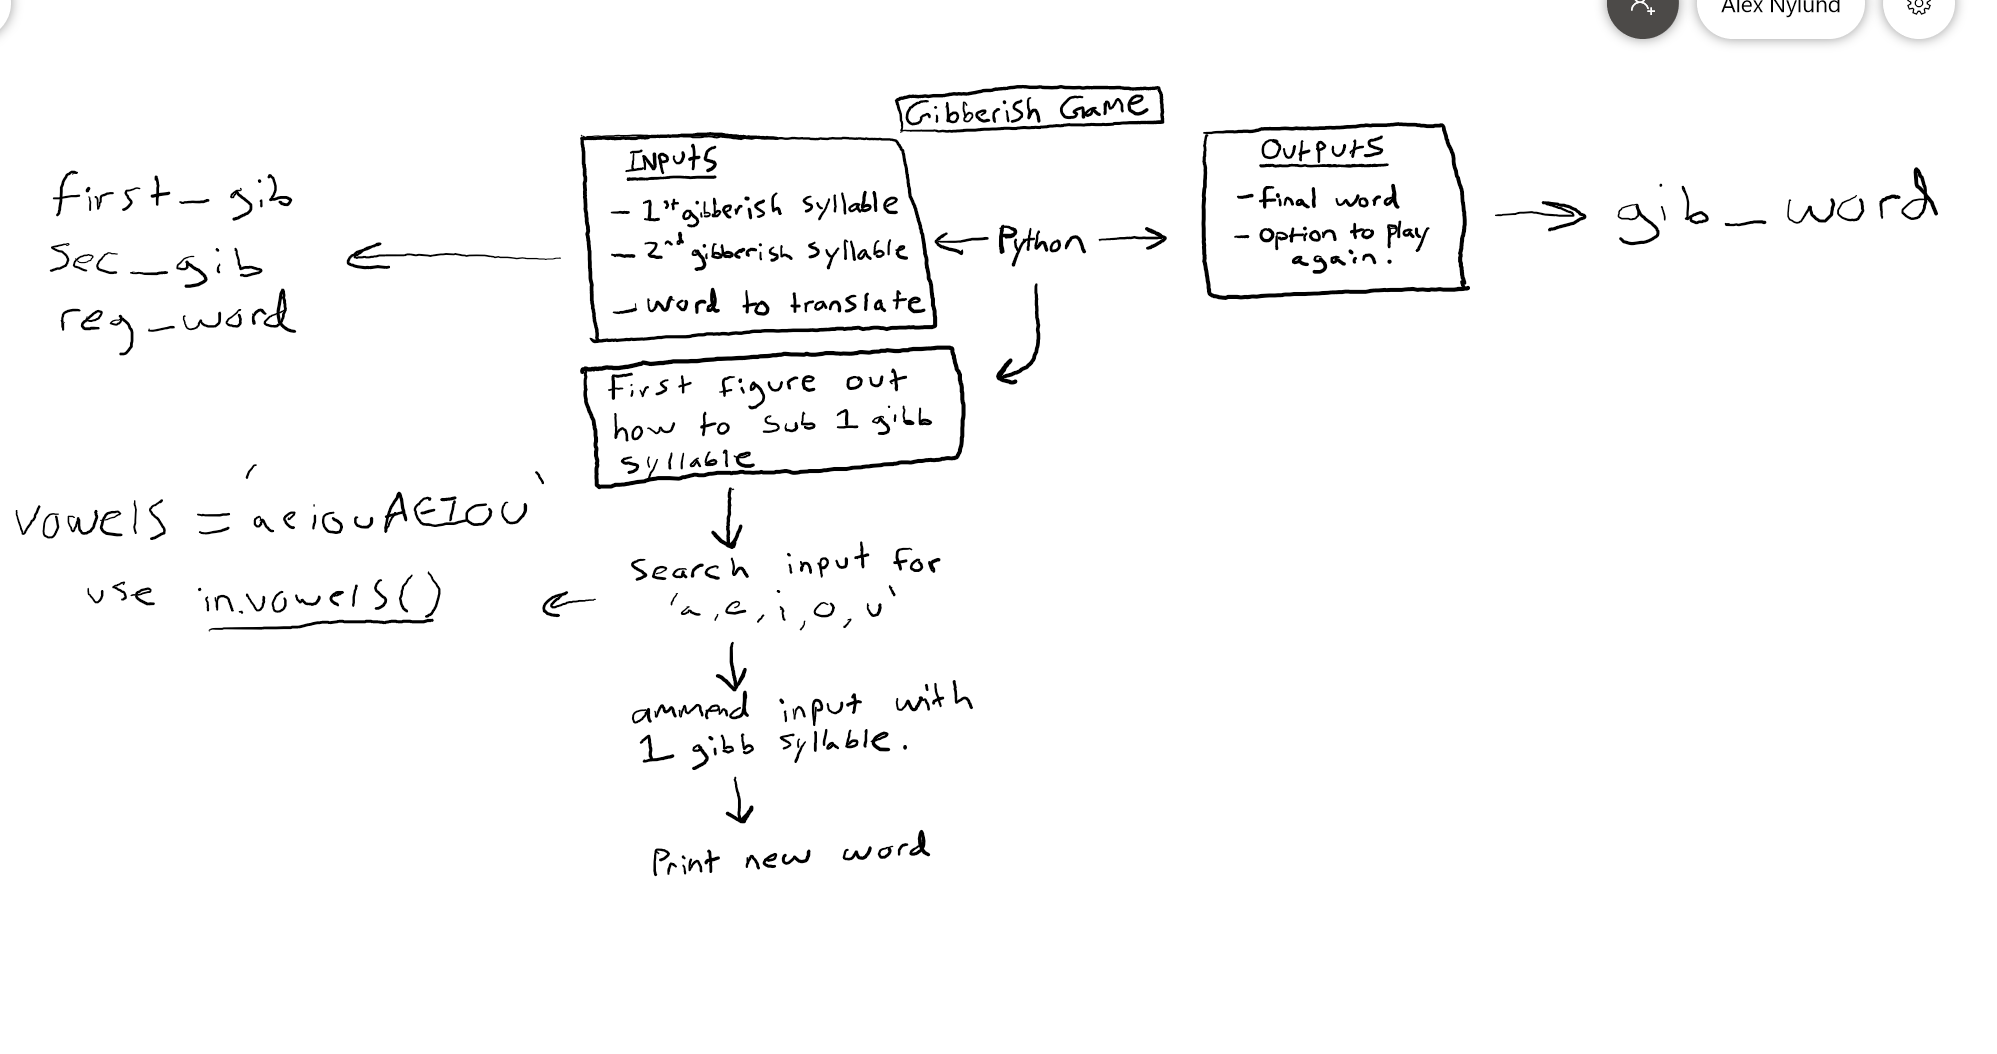 Alex Nylund
Gibberish Game
Inputs
- 1st gibberish syllable
- 2nd gibberish syllable
- word to translate
first_gib
sec_gib
reg_word
Python
Outputs
- final word
- option to play
again.
gib_word
First figure out
how to sub 1 gibb
syllable
vowels = 'aeiouAEIOU'
use in.vowels()
Search input for
'a, e, i, o, u'
ammend input with
1 gibb syllable.
Print new word